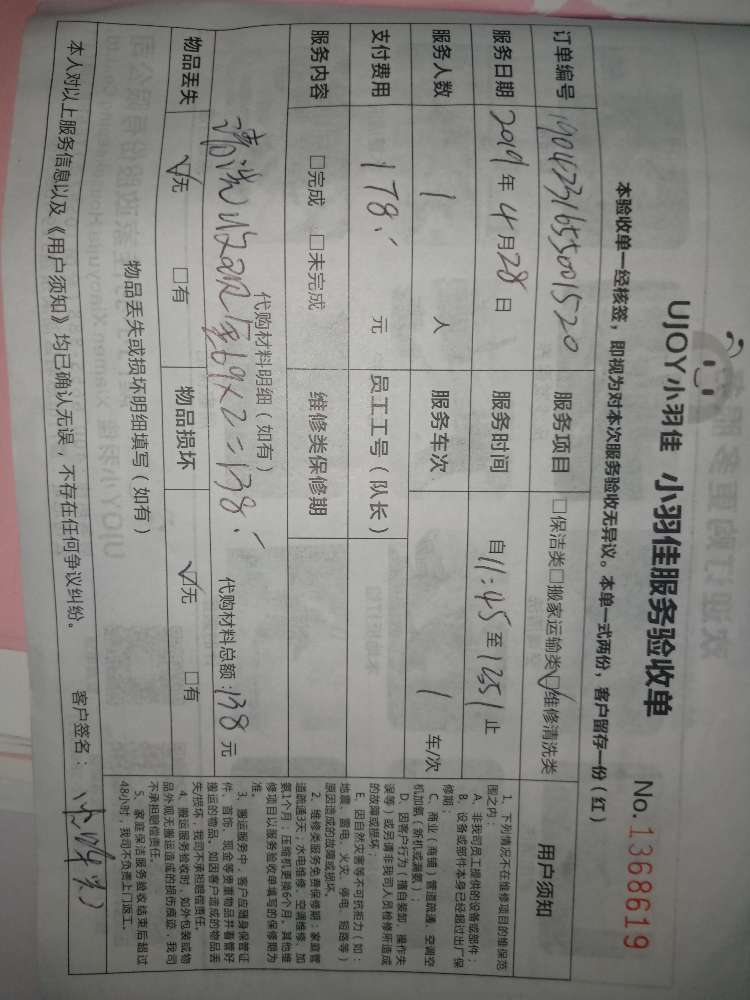 UJOY小羽佳 小羽佳服务验收单
No.1368619
本验收单一经核签，即视为对本次服务验收无异议。本单一式两份，客户留存一份（红）
订单编号 服务项目 □保洁类□搬家运输类☑维修清洗类
服务日期 2019年4月28日 服务时间 自11:45至1251止
服务人数 1人 服务车次 1车/次
支付费用 178.元 员工工号（队长）
服务内容 □完成 □未完成 维修类保修期
代购材料明细（如有）
69×2=138. 代购材料总额:138元
物品丢失 ☑无 □有 物品损坏 ☑无 □有
物品丢失或损坏明细填写（如有）
本人对以上服务信息以及《用户须知》均已确认无误，不存在任何争议纠纷。 客户签名：
用户须知
1、下列情况不在维修项目的维保范
围之内：
A、非我司员工提供的设备或部件；
B、设备或部件本身已经超过出厂保
修期；
C、商业（商铺）管道疏通、空调空
机加氨（新机或漏氨）；
D、因客户行为（擅自装卸、操作失
误等）或另请非我司人员检修所造成
的故障或损坏；
E、因自然灾害等不可抗拒力（如：
地震、雷电、火灾、停电、短路等）
原因造成的故障或损坏。
2、维修类服务免费保修期：家庭管
道疏通3天，水电维修、空调维修、加
氨1个月；压缩机更换6个月。其他维
修项目以服务验收单填写的保修期为
准。
3、搬运服务中，客户应随身保管证
件、首饰、现金等贵重物品并看管好
搬运的物品。如因客户造成的物品丢
失/损坏，我司不承担赔偿责任。
4、搬运服务验收时，如外包装或物
品外观无搬运造成的损伤痕迹，我司
不承担赔偿责任。
5、家庭保洁服务验收结束后超过
48小时，我司不负责上门返工。